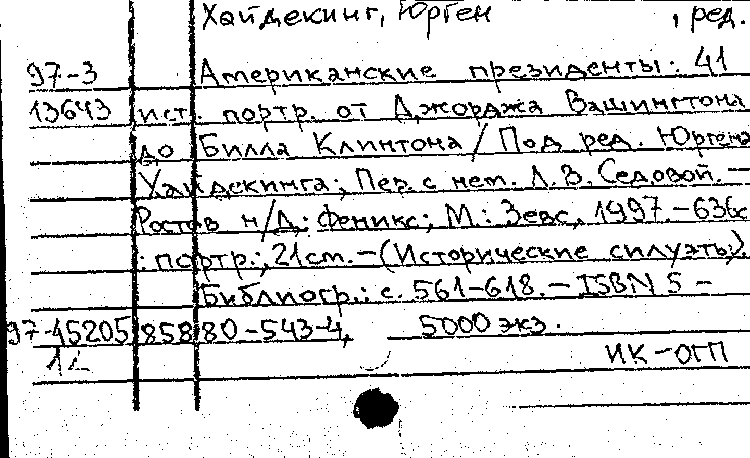 Хайдекинг, Юрген , ред.
97-3 Американские президенты: 41
13643 ист. портр. от Джорджа Вашингтона
до Билла Клинтона / Под ред. Юргена
Хайдекинга; Пер. с нем. Л. В. Седовой. —
Ростов н/Д: Феникс; М.: Зевс, 1997. - 636с
: портр.; 21 см. - (Исторические силуэты).
Библиогр.: с. 561-618. - ISBN 5 -
97-15205 858 80-543-4, 5000 экз.
ИК-ОГП